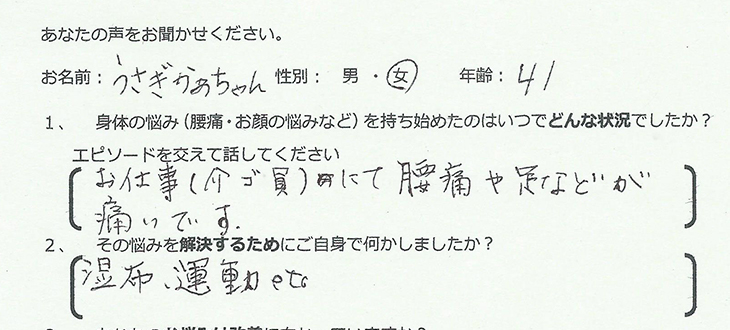 あなたの声をお聞かせください。
お名前： うさぎかあちゃん 性別： 男 ・ 女 年齢： 41
１、 身体の悩み（腰痛・お顔の悩みなど）を持ち始めたのはいつでどんな状況でしたか？
エピソードを交えて話してください
お仕事（介ゴ員）にて腰痛や足などが
痛いです.
２、 その悩みを解決するためにご自身で何かしましたか？
湿布、運動etc